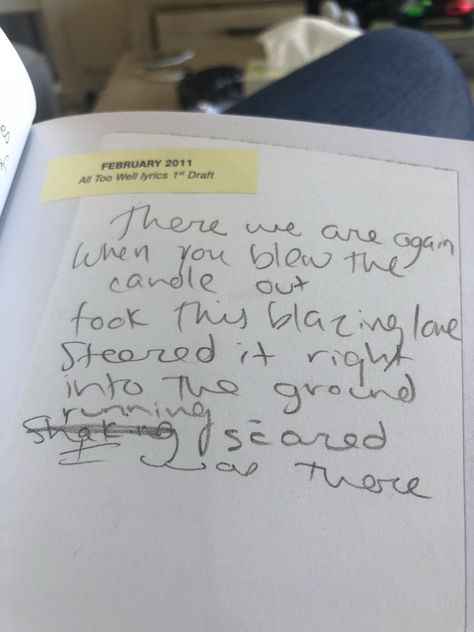 FEBRUARY 2011
All Too Well lyrics 1st Draft
There we are again
when you blew the
candle out
took this blazing love
steered it right
into the ground
running
shaking scared
I was there